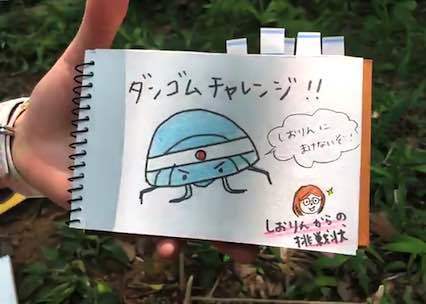 ダンゴムチャレンジ!!
しおりんに
まけないぞ…!
しおりんからの
挑戦状